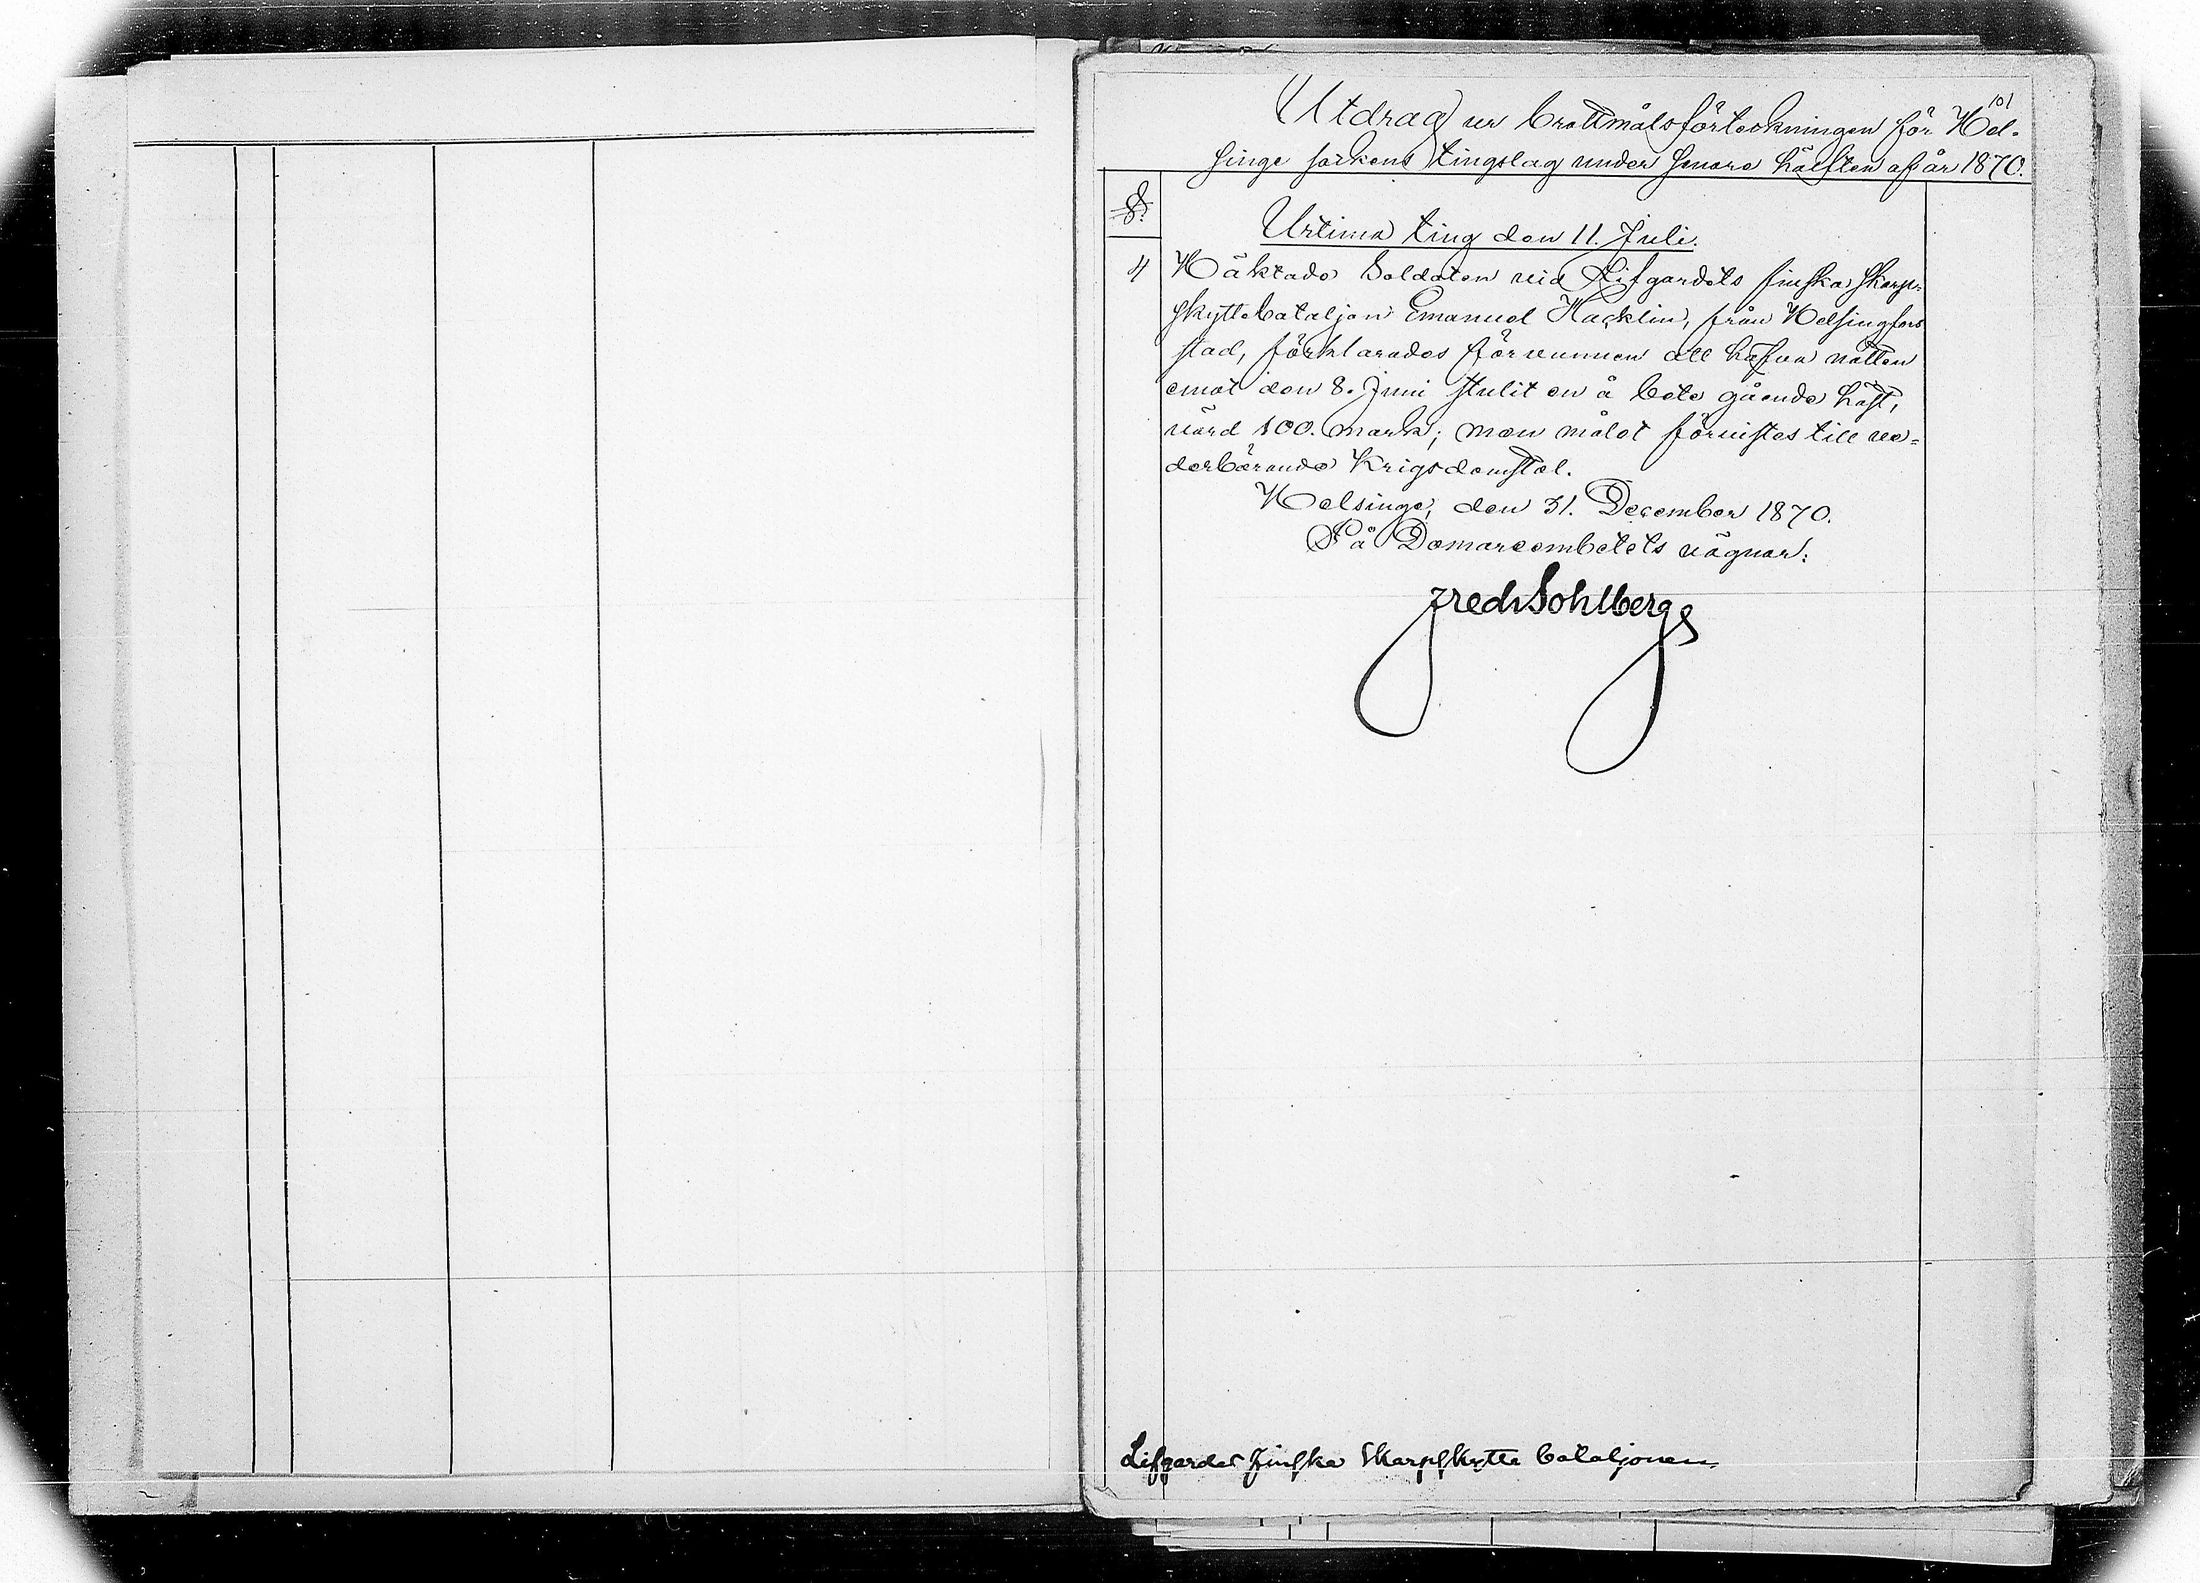 101
Utdrag ur brottmålsförteckningen för Hel-
singe sockens tingslag under senare hälften af år 1870.
§.
Urtima ting den 11. Juli.
4 Häktade Soldaten vid Lifgardets finska skarp-
skyttebataljon Emanuel Hacklin, från Helsingfors
stad, förklarades förvunnen att hafva natten
emot den 8. Juni stulit en å bete gående häst,
värd 100. mark; men målet förvistes till ve-
derbörande Krigsdomstol.
Helsinge, den 31. December 1870.
På Domareembetets vägnar:
Fredr Sohlberg
Lifgardes Finska Skarpskytte bataljonen